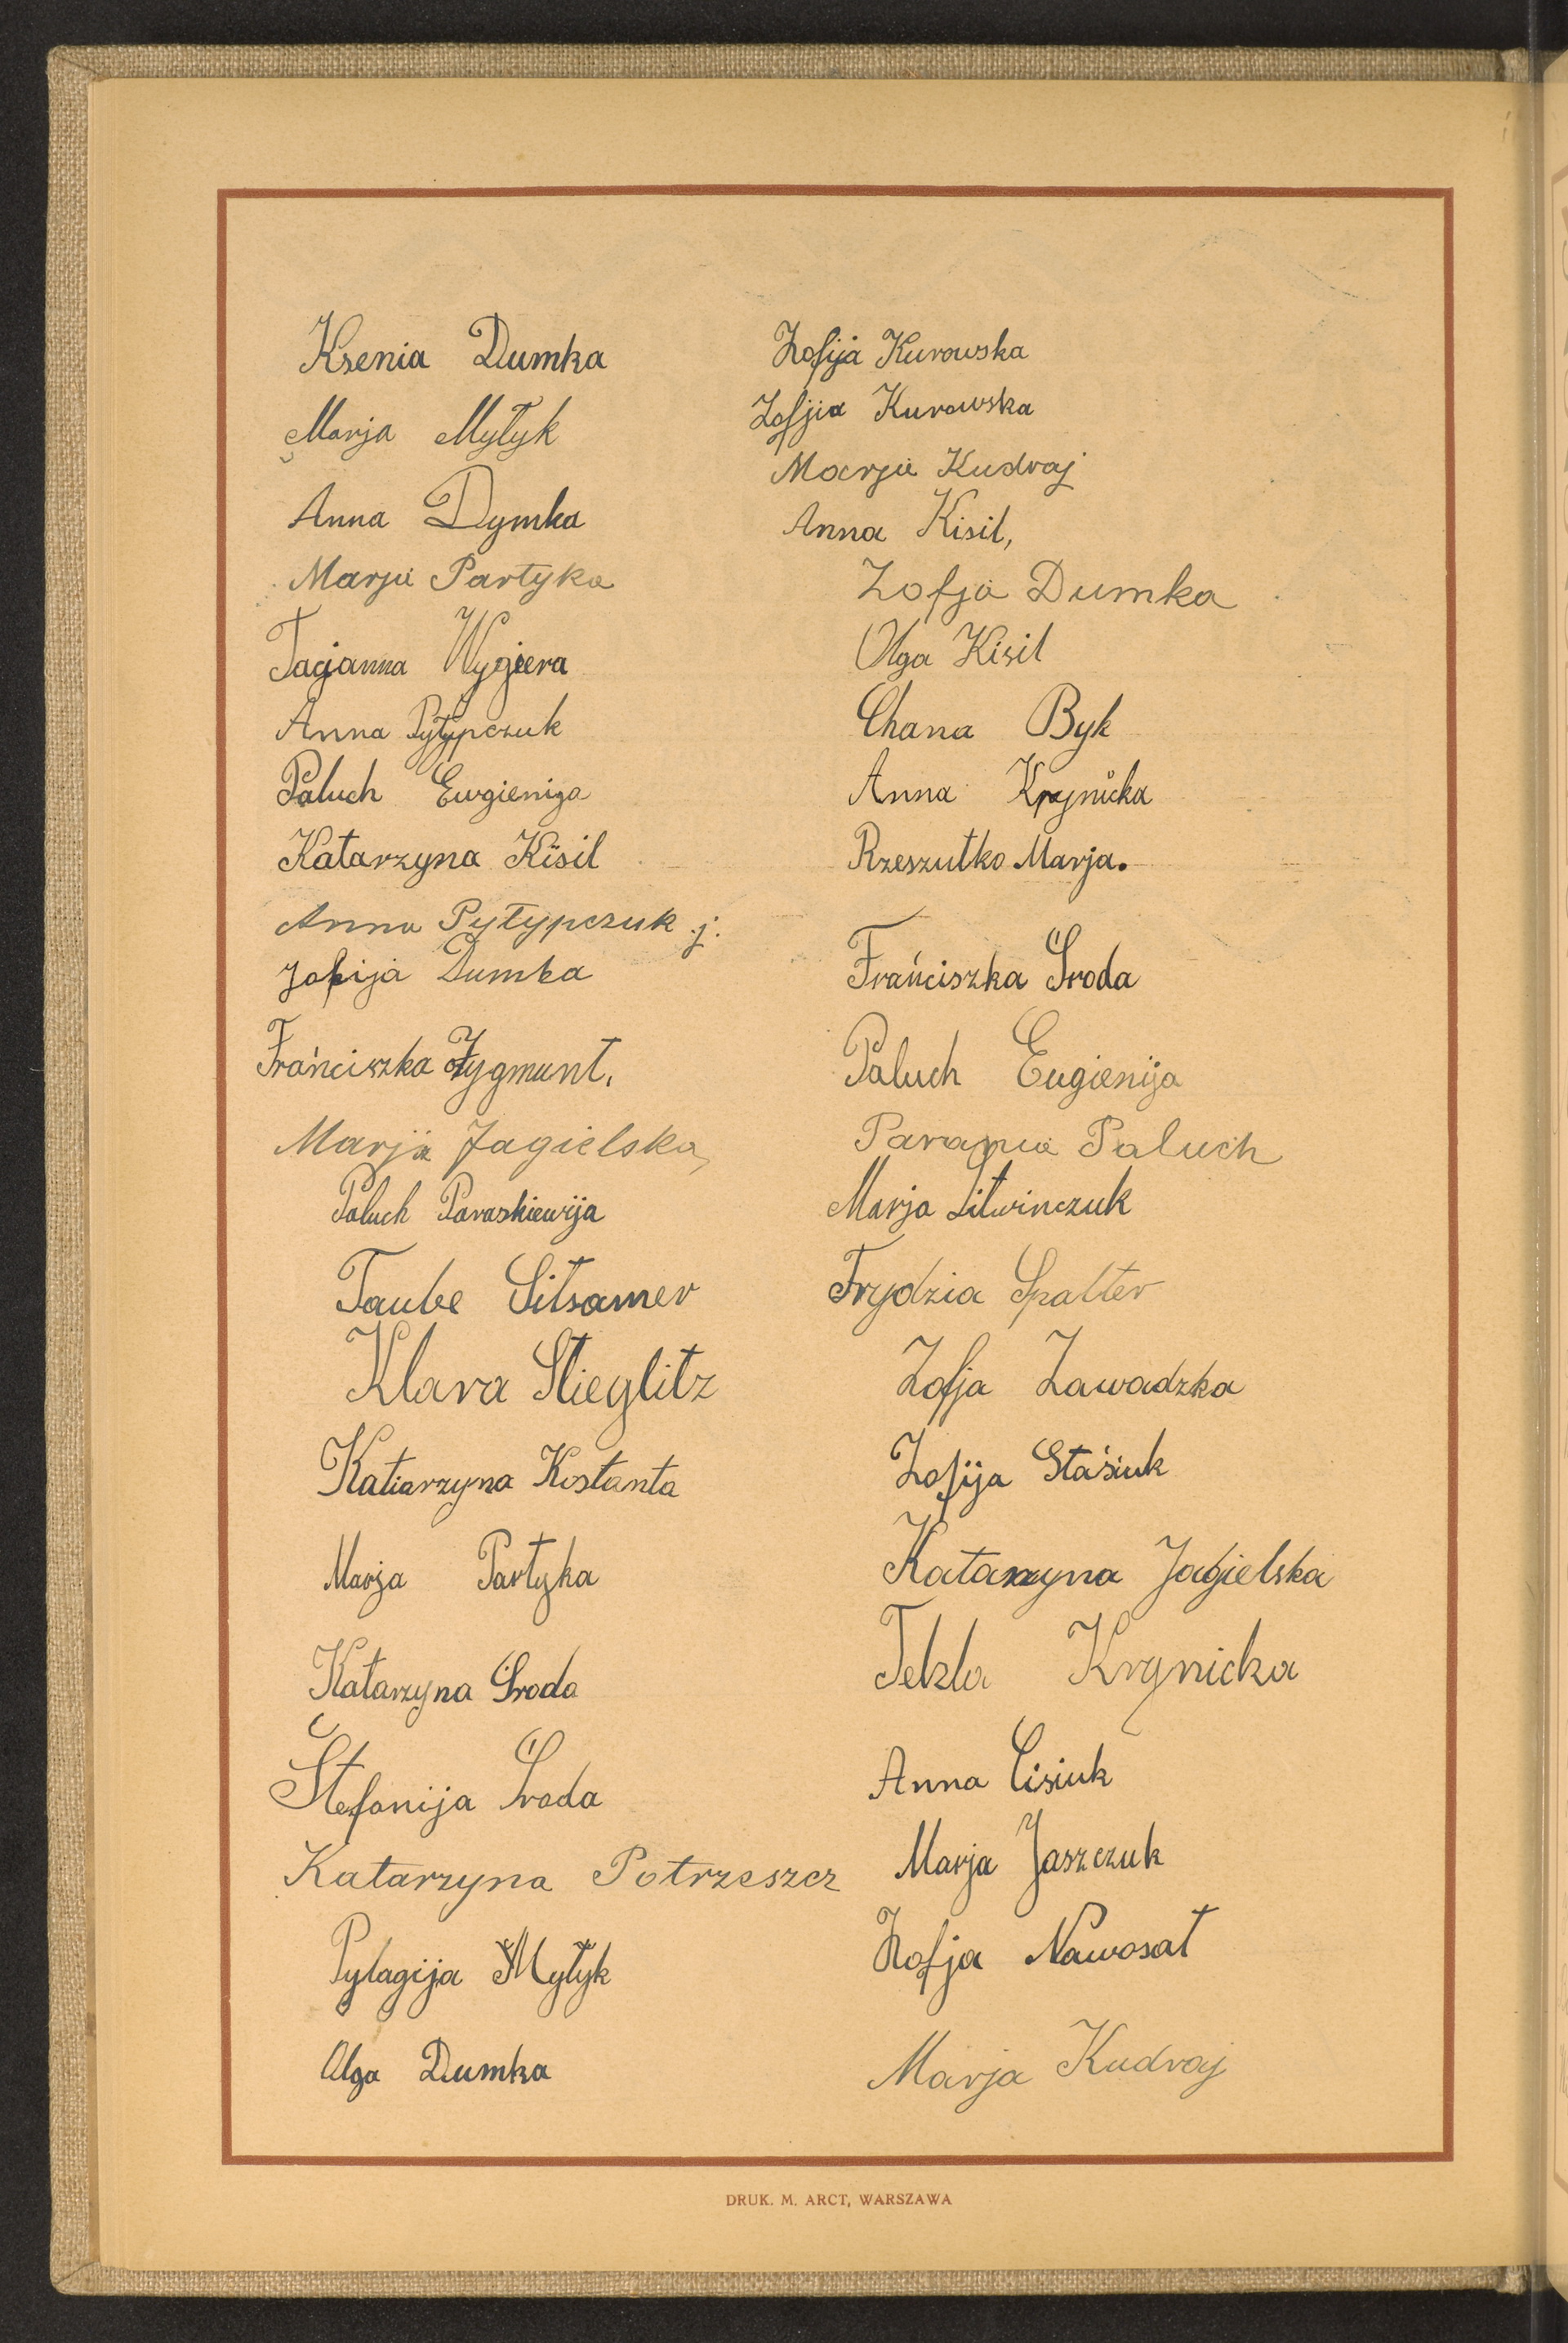 Ksenia Dumka
Marja Mytyk
Anna Dymka
Marja Partyka
Tacjanna Wygiera
Anna Pytypczuk
Paluch Ewgienija
Katarzyna Kisil
Anna Pytypczuk j.
Zofija Dumka
Frańciszka Zygmunt.
Marja Jagielska
Paluch Paraskiewija
Taube Sitsamer
Klara Stieglitz
Katarzyna Kostanta
Marja Partyka
Katarzyna Środa
Stefanija Środa
Katarzyna Potrzeszcz
Pylagija Mytyk
Olga Dumka
Zofija Kurowska
Zofjia Kurowska
Marja Kudraj
Anna Kisil,
Zofja Dumka
Olga Kisil
Chana Byk
Anna Krynicka
Rzeszutko Marja.
Frańciszka Środa
Paluch Eugienija
Parania Paluch
Marja Litwinczuk
Frydzia Spalter
Zofja Zawadzka
Zofija Staśiuk
Katarzyna Jagielska
Tekla Krynicka
Anna Cisiuk
Marja Jaszczuk
Zofja Nawosat
Marja Kudraj
DRUK. M. ARCT, WARSZAWA